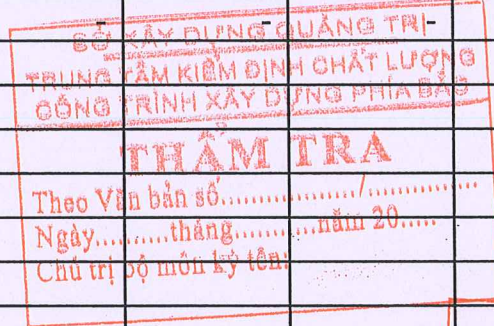 SỞ XÂY DỰNG QUẢNG TRỊ
TRUNG TÂM KIỂM ĐỊNH CHẤT LƯỢNG
CÔNG TRÌNH XÂY DỰNG PHÍA BẮC
THẨM TRA
Theo Văn bản số................/................
Ngày..........tháng...........năm 20.....
Chủ trì bộ môn ký tên: